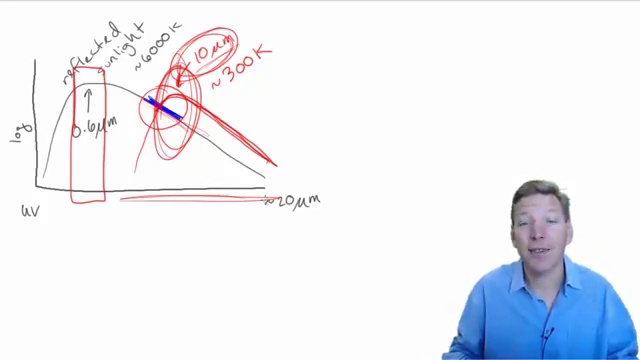 reflected
sunlight
~6000K
10 μm
~300K
0.6μm
log
UV
~20μm